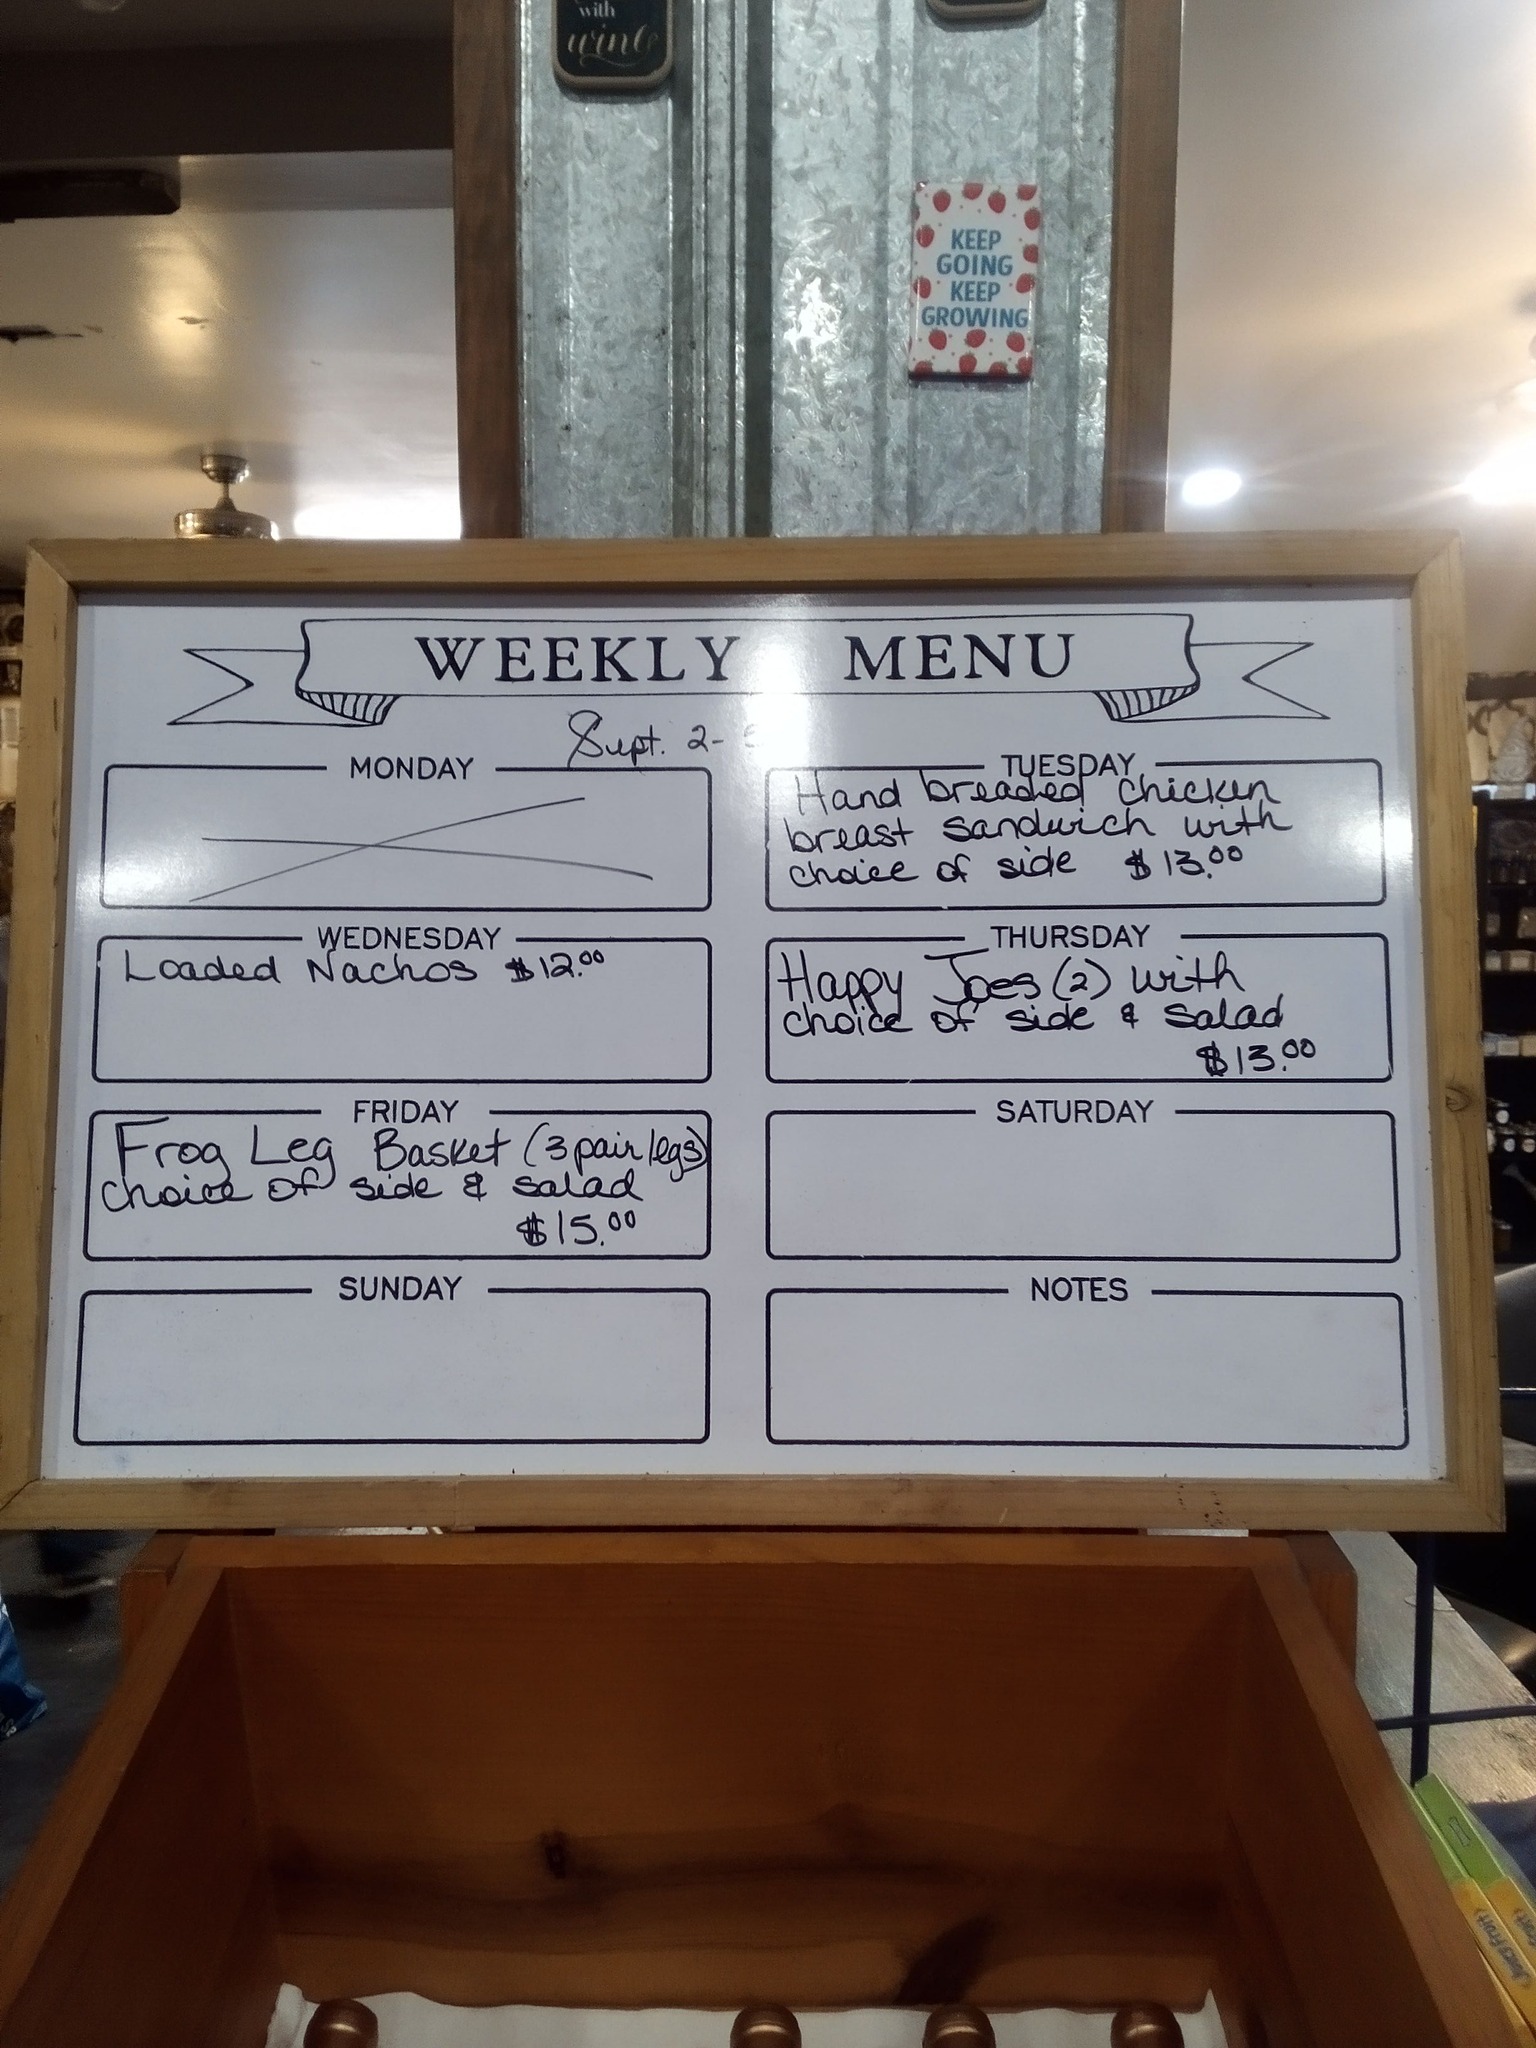 with
wine
KEEP
GOING
KEEP
GROWING
WEEKLY MENU
Sept. 2-5
MONDAY
TUESDAY
Hand breaded chicken
breast sandwich with
choice of side $13.00
WEDNESDAY
Loaded Nachos $12.00
THURSDAY
Happy Joes (2) with
choice of side & salad
$13.00
FRIDAY
Frog Leg Basket (3 pair legs)
choice of side & salad
$15.00
SATURDAY
SUNDAY
NOTES